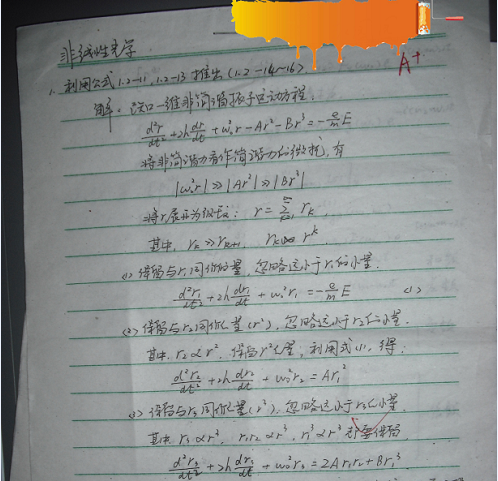 非线性光学
A+
1. 利用公式1.2-11, 1.2-13 推出(1.2-14~16)
解: 设一维非简谐振子运动方程:
d²r/dt² + 2h dr/dt + ω₀²r - Ar² - Br³ = -e/m E
将非简谐力看作简谐力的微扰, 有
|ω₀²r| >> |Ar²| >> |Br³|
将r展开为级数: r = ∑ rₖ
其中, rₖ >> rₖ₊₁, rₖ ∝ rᵏ
(1) 保留与r₁同阶的量, 忽略远小于r₁的小量.
d²r₁/dt² + 2h dr₁/dt + ω₀²r₁ = -e/m E (1)
(2) 保留与r₂同阶量(r²), 忽略远小于r₂的小量.
其中 r₂ ∝ r², 保留r²量, 利用式(1), 得:
d²r₂/dt² + 2h dr₂/dt + ω₀²r₂ = Ar₁²
(3) 保留与r₃同阶量(r³), 忽略远小于r₃小量
其中 r₃ ∝ r³, r₁r₂ ∝ r³, r₁³ ∝ r³ 都要保留
d²r₃/dt² + 2h dr₃/dt + ω₀²r₃ = 2Ar₁r₂ + Br₁³